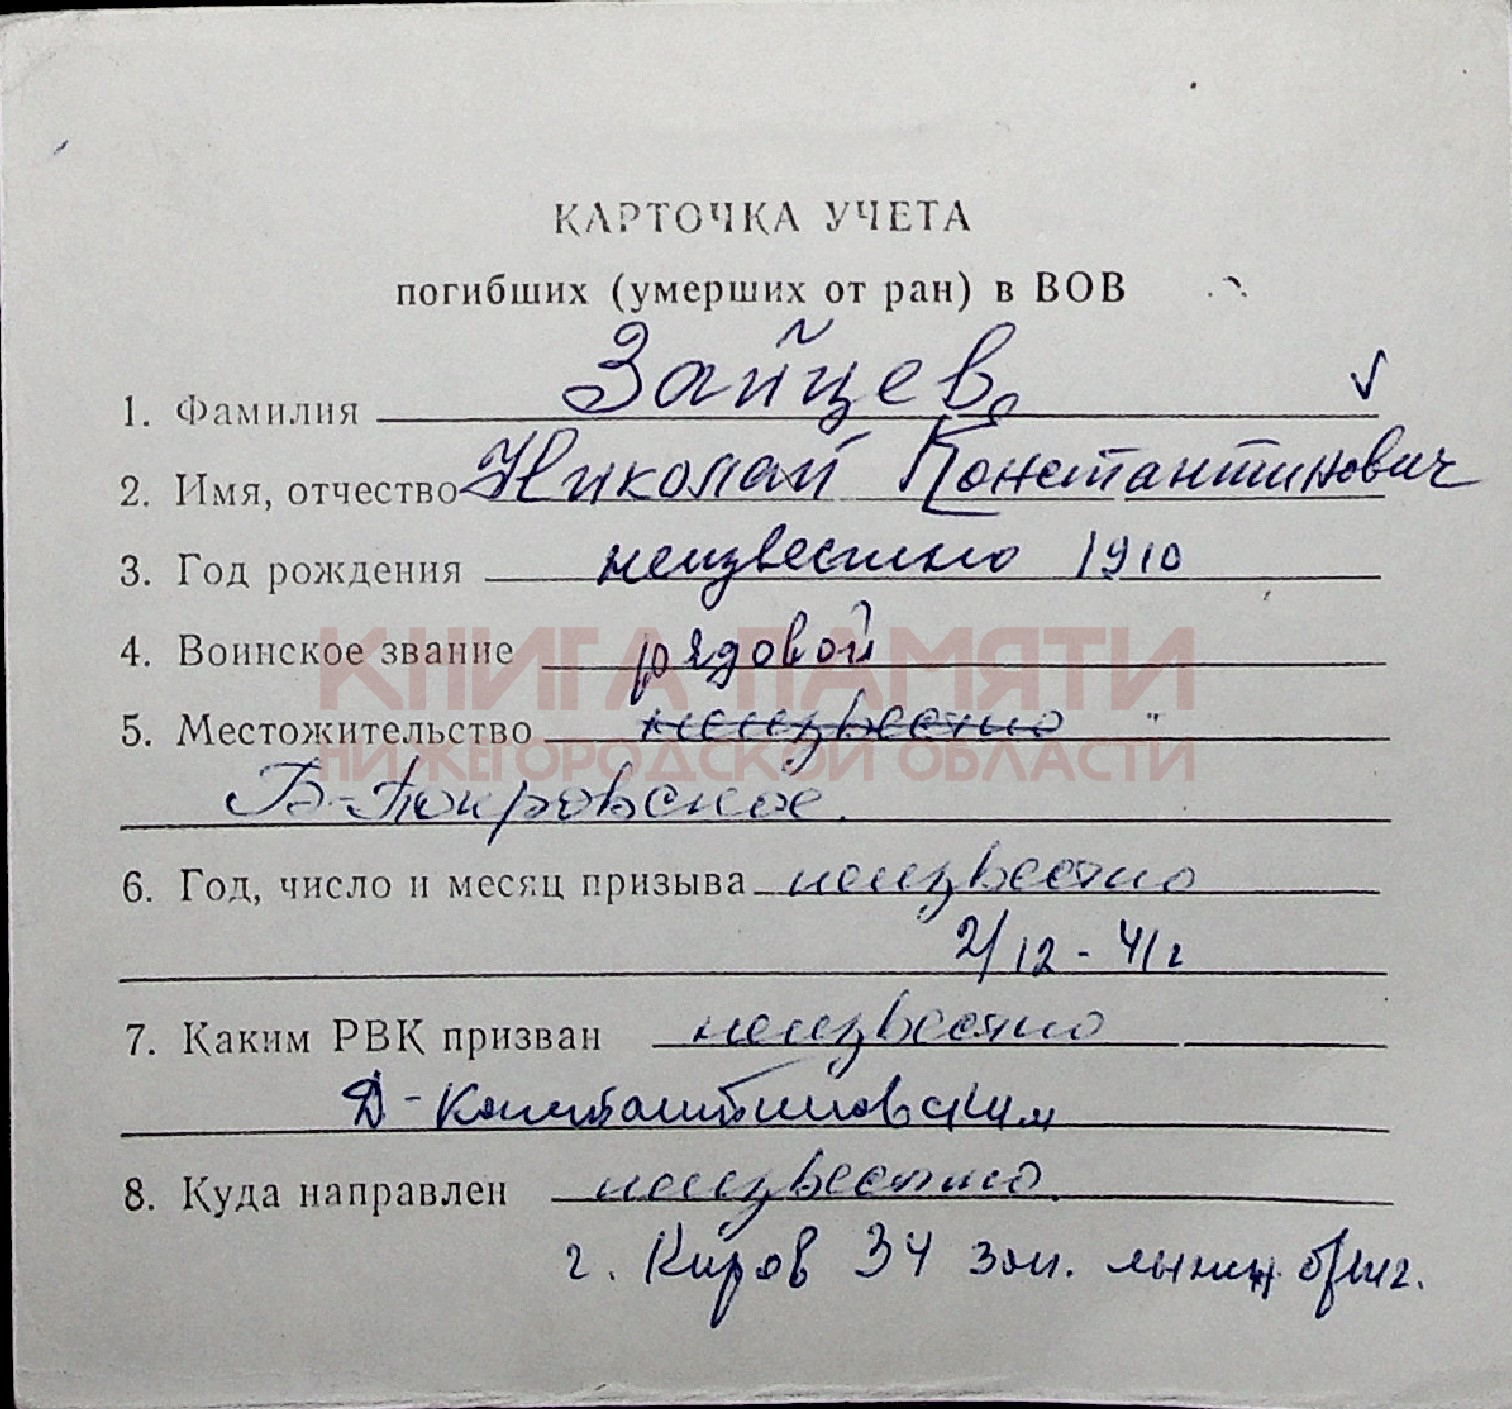 КАРТОЧКА УЧЕТА
погибших (умерших от ран) в ВОВ
1. Фамилия Зайцев
2. Имя, отчество Николай Константинович
3. Год рождения неизвестно 1910
4. Воинское звание рядовой
КНИГА ПАМЯТИ
5. Местожительство неизвестно
НИЖЕГОРОДСКОЙ ОБЛАСТИ
Б-Покровское.
6. Год, число и месяц призыва неизвестно
2/12 - 41г
7. Каким РВК призван неизвестно
Д-Константиновским
8. Куда направлен неизвестно.
г. Киров 34 зап. лыжн. бриг.